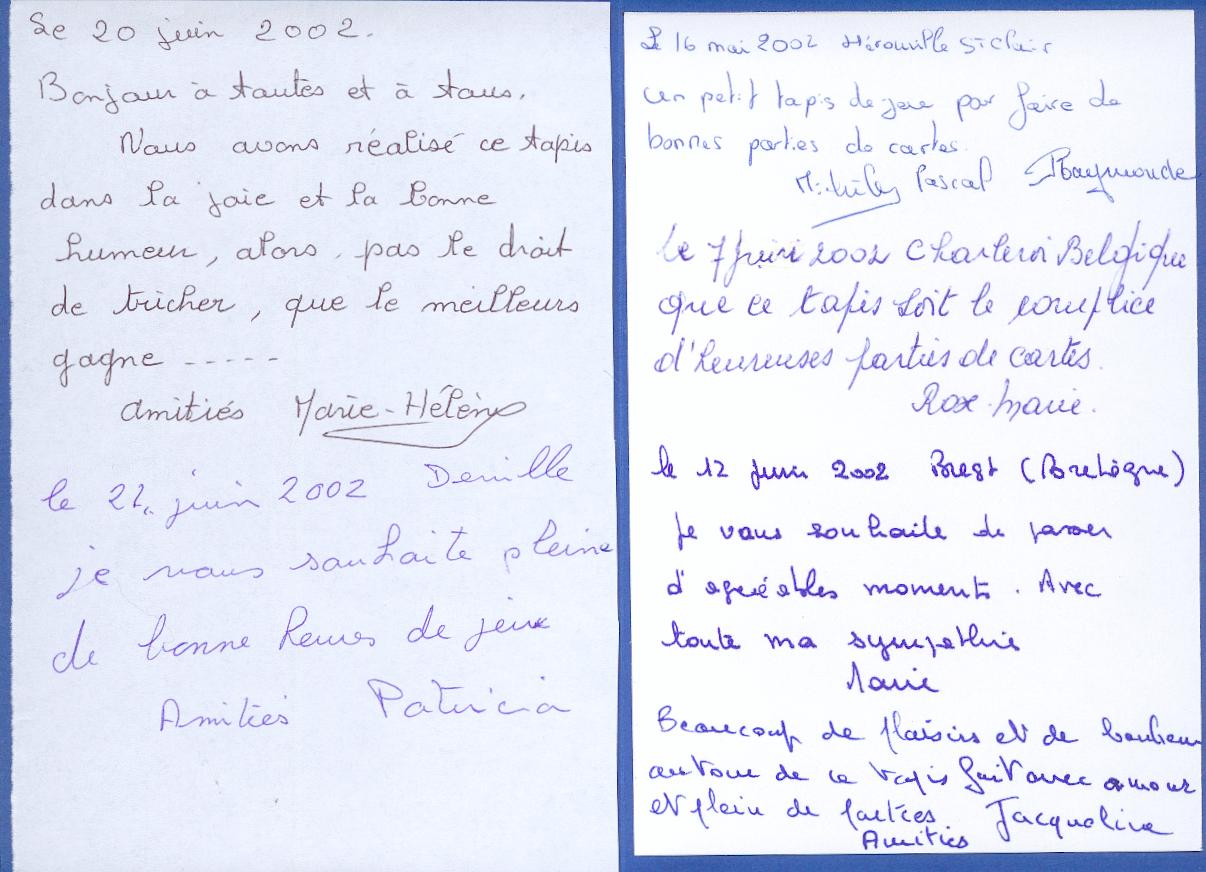 Le 20 juin 2002.
Bonjour à toutes et à tous,
Nous avons réalisé ce tapis
dans la joie et la bonne
humeur, alors, pas le droit
de tricher, que le meilleurs
gagne -----
amitiés Marie-Hélène
le 22 juin 2002 Deville
je vous souhaite pleine
de bonne heures de jeux
Amitiés Patricia
Le 16 mai 2002 Hérouville St Clair
un petit tapis de jeu par faire de
bonnes parties de cartes.
Pascal Raymonde
le 7 juin 2002 Charleroi Belgique
que ce tapis soit le complice
d'heureuses parties de cartes.
Rose-Marie.
le 12 juin 2002 Brest (Bretagne)
Je vous souhaite de passer
d'agréables moments. Avec
toute ma sympathie
Marie
Beaucoup de plaisirs et de bonheur
autour de ce tapis fait avec amour
et plein de parties Jacqueline
Amitiés